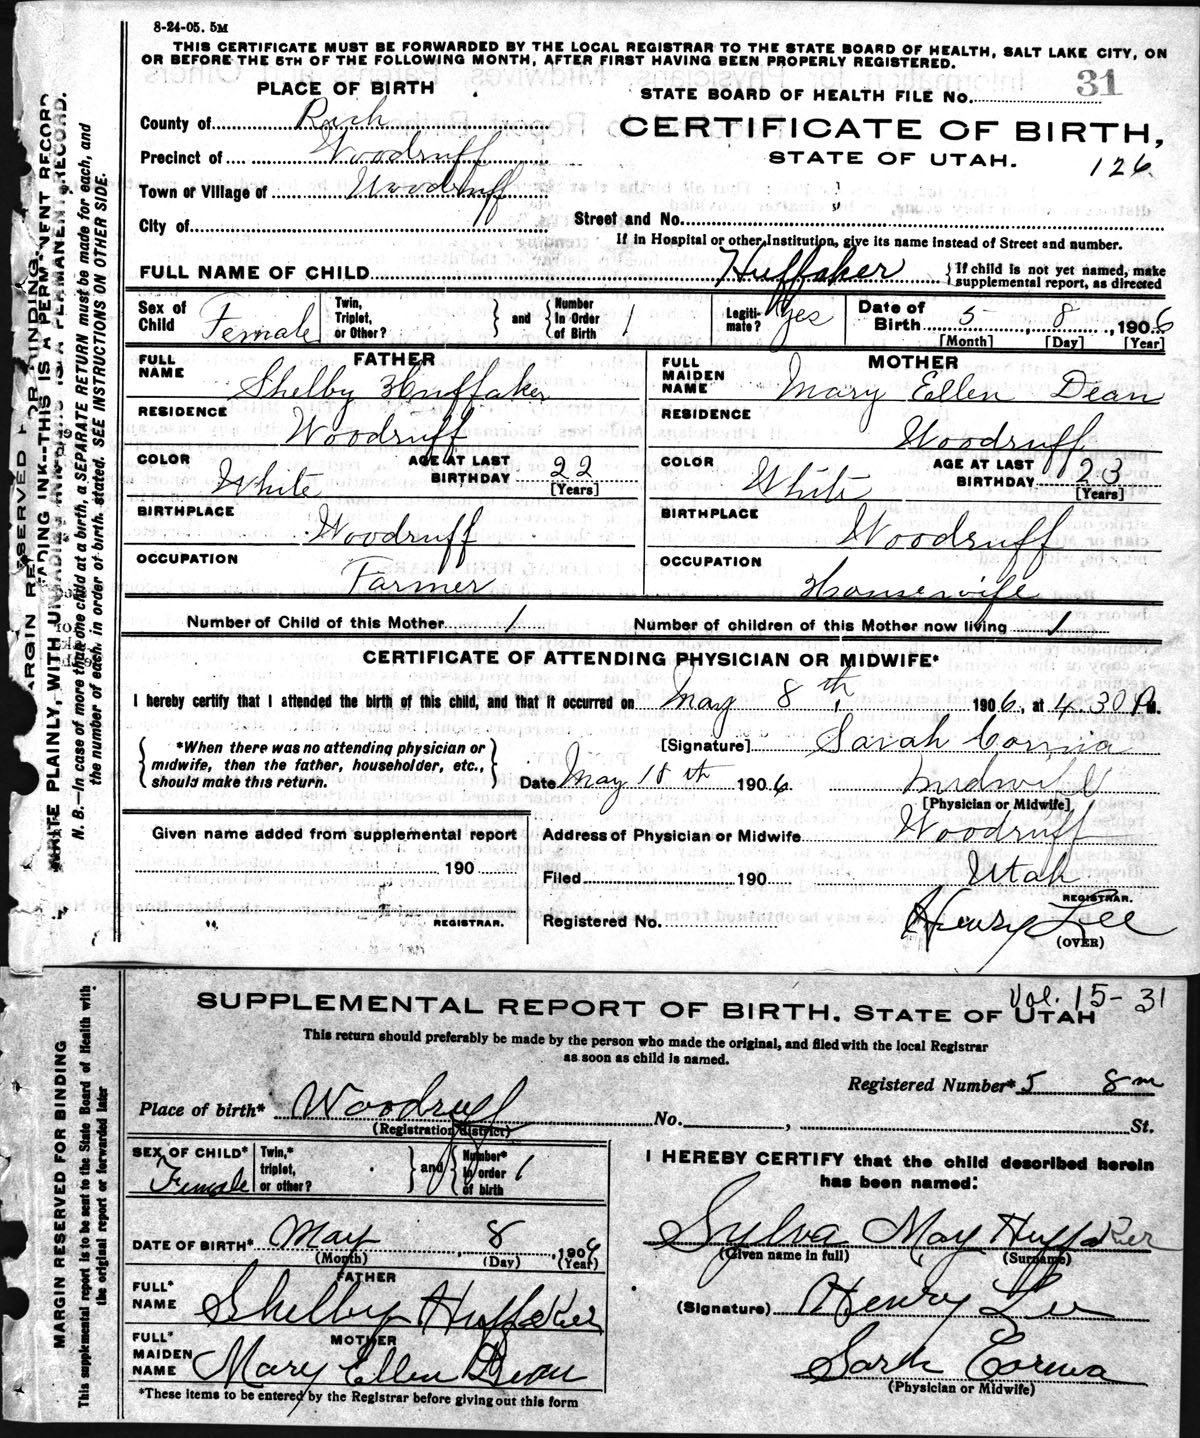 8-24-05. 5M
THIS CERTIFICATE MUST BE FORWARDED BY THE LOCAL REGISTRAR TO THE STATE BOARD OF HEALTH, SALT LAKE CITY, ON
OR BEFORE THE 5TH OF THE FOLLOWING MONTH, AFTER FIRST HAVING BEEN PROPERLY REGISTERED.
PLACE OF BIRTH
STATE BOARD OF HEALTH FILE No. 31
County of Rich
CERTIFICATE OF BIRTH,
Precinct of Woodruff
STATE OF UTAH. 126
Town or Village of Woodruff
City of
Street and No.
If in Hospital or other Institution, give its name instead of Street and number.
FULL NAME OF CHILD Huffaker {If child is not yet named, make supplemental report, as directed
Sex of Child Female Twin, Triplet, or Other? } and { Number In Order of Birth 1 Legitimate? Yes Date of Birth 5 8, 1906
[Month] [Day] [Year]
FATHER MOTHER
FULL NAME Shelby Huffaker
FULL MAIDEN NAME Mary Ellen Dean
RESIDENCE Woodruff
RESIDENCE Woodruff
COLOR White AGE AT LAST BIRTHDAY 22 [Years]
COLOR White AGE AT LAST BIRTHDAY 23 [Years]
BIRTHPLACE Woodruff
BIRTHPLACE Woodruff
OCCUPATION Farmer
OCCUPATION Housewife
Number of Child of this Mother 1 Number of children of this Mother now living 1
CERTIFICATE OF ATTENDING PHYSICIAN OR MIDWIFE*
I hereby certify that I attended the birth of this child, and that it occurred on May 8th, 1906, at 4.30 P M.
{*When there was no attending physician or midwife, then the father, householder, etc., should make this return.}
[Signature] Sarah Cornia
Date May 18th 1906. Midwife
[Physician or Midwife]
Given name added from supplemental report
190
REGISTRAR.
Address of Physician or Midwife Woodruff
Filed 190 Utah
REGISTRAR.
Registered No. Henry Lee
(OVER)
MARGIN RESERVED FOR BINDING.
WRITE PLAINLY, WITH UNFADING INK---THIS IS A PERMANENT RECORD.
N. B.—In case of more than one child at a birth, a SEPARATE RETURN must be made for each, and
the number of each, in order of birth, stated. SEE INSTRUCTIONS ON OTHER SIDE.
Vol. 15-31
SUPPLEMENTAL REPORT OF BIRTH, STATE OF UTAH
This return should preferably be made by the person who made the original, and filed with the local Registrar
as soon as child is named.
Registered Number* 5 8m
Place of birth* Woodruff No. , St.
(Registration district)
SEX OF CHILD* Female Twin,* triplet, or other? } and { Number* In order of birth 1
I HEREBY CERTIFY that the child described herein
has been named:
DATE OF BIRTH* May, 8, 1906
(Month) (Day) (Year)
Sylva May Huffaker
(Given name in full) (Surname)
FATHER
FULL* NAME Shelby Huffaker
(Signature) Henry Lee
MOTHER
FULL* MAIDEN NAME Mary Ellen Dean
Sarh Cornia
(Physician or Midwife)
*These items to be entered by the Registrar before giving out this form
MARGIN RESERVED FOR BINDING
This supplemental report is to be sent to the State Board of Health with
the original report or forwarded later